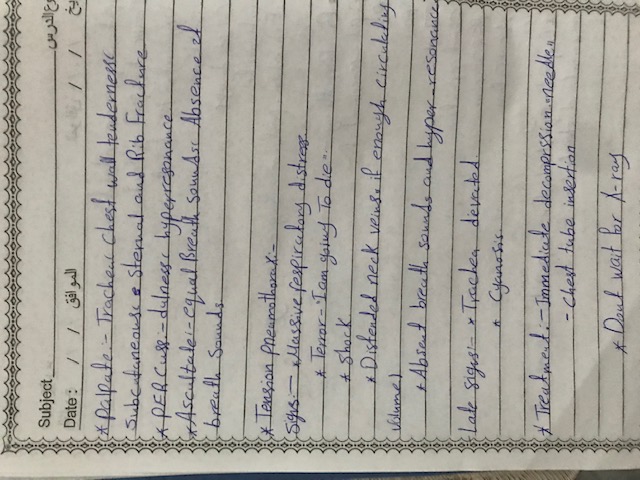 Subject
Date : / / الموافق / /
* Palpate:- Trachea, chest wall tenderness
Subcutaneous e Sternal and Rib Fracture
* PERCuss:- dulness, hyperresonance
* Ascultate:- equal Breath sounds: Absence of
breath sounds
* Tension pneumothorax:-
Signs:- * Massive respiratory distress
* Terror - I am going To die..
* Shock
* Distended neck veins, if enough circulating
volume)
* Absent breath sounds and hyper-resonance
Late signs:- * Trachea devated
* Cyanosis
* Treatment:- Immediate decompression needle
- chest tube insertion
* Dont wait for X-ray